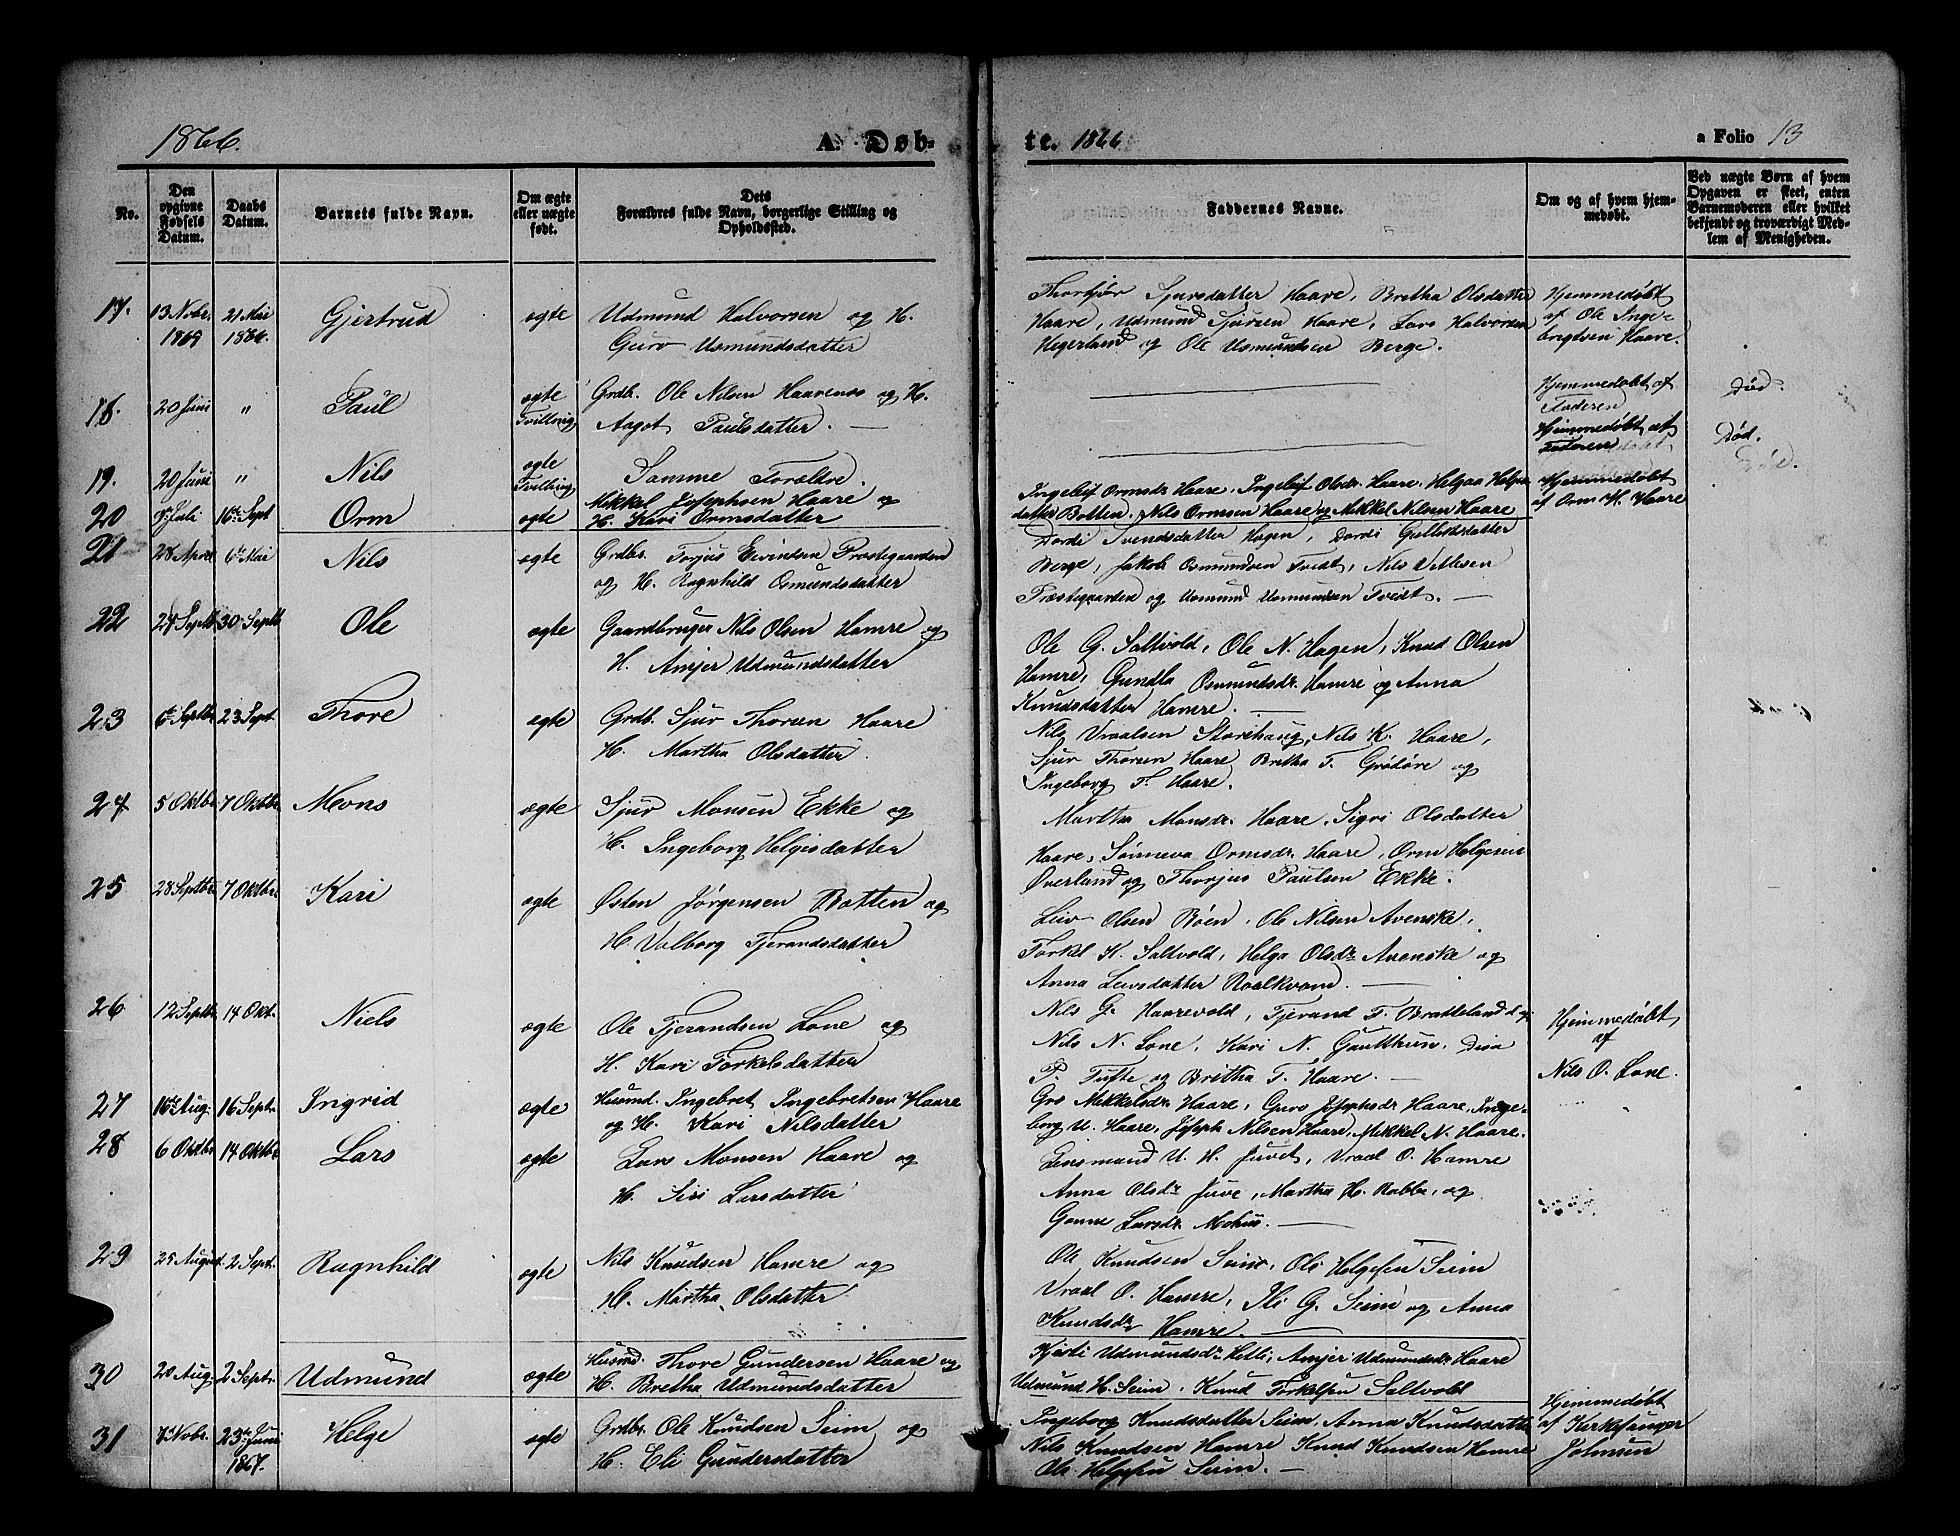 1866.
A. Døb-
te. 1866
a Folio 13
No.
Den opgivne Fødsels Datum.
Daabs Datum.
Barnets fulde Navn.
Om ægte eller uægte født.
Dets Forældres fulde Navn, borgerlige Stilling og Opholdssted.
Faddernes Navne.
Om og af hvem hjemmedøbt.
Ved uægte Børn af hvem Opgaven er skeet, enten Barnemoderen eller hvilket bekjendt og troværdigt Medlem af Menigheden.
17. 13 Nobr. 1865 21 Mai 1866. Gjertrud ægte Udmund Halvorsen og H.
Guro Usmundsdatter
Thorbjør Sjursdatter Haare, Bretha Olsdatter
Haare, Udmund Sjursen Haare, Lars Halvorsen
Hegerland og Ole Usmundsen Berge.
Hjemmedøbt
af Ole Inge-
brigtsen Haare.
18. 20 Juni " Paul ægte Tvilling Grdb. Ole Nilsen Haarenes og H.
Aagot Paulsdatter. —
Hjemmedøbt af
Faderen
Død.
19. 20 Juni " Nils ægte Tvilling Samme Forældre.
Hjemmedøbt af
Faderen
Død.
20 7 Juli 16 Sept Orm ægte Mikkel Josephsen Haare og
H. Kari Ormsdatter
Ingebjør Ormsdr Haare, Ingebjør Olsdr. Haare, Helgaa Helges
datter Botten, Nils Ormsen Haare og Mikkel Nilsen Haare
Hjemmedøbt
af Orm H. Haare
21 28 April 6 Mai Nils ægte Grdbr. Torjus Eivindsen Præstegaarden
og H. Ragnhild Osmundsdatter
Dordi Svendsdatter Hagen, Dordi Gulleiksdatter
Berge, Jakob Osmundsen Tvedt, Nils Vetlesen
Præstegaarden og Usmund Usmundsen Tvedt. —
22 24 Septb 30 Septb Ole ægte Gaardbruger Nils Olsen Hamre og
H. Amjer Udmundsdatter
Ole G. Saltvold, Ole N. Hagen, Knud Olsen
Hamre, Gundla Osmundsdr. Hamre og Anna
Knudsdatter Hamre. —
23 6 Septbr 23 Sept. Thore ægte Grdb. Sjur Thorsen Haare
H. Martha Olsdatter.
Nils Vraalsen Storehaug, Nils K. Haare,
Sjur Thorsen Haare, Bretha T. Grødøre og
Ingeborg T. Haare.
24 5 Oktbr 7 Oktbr Mons ægte Sjur Monsen Ekke og
H. Ingeborg Helgesdatter
Martha Monsdr. Haare, Sigri Olsdatter
Haare, Sønneva Ormsdr. Haare, Orm Helgesen
Øverland og Thorjus Paulsen Ekke.
25 28 Septbr. 7 Oktbr. Kari ægte Østen Jørgensen Botten og
H. Valborg Tjerandsdatter
Leiv Olsen Bøen, Ole Nilsen Avenske,
Torkel K. Saltvold, Helga Olsdr. Avenske og
Anna Leivsdatter Roalkvam. —
26 12 Septbr 14 Okt. Niels ægte Ole Tjerandsen Lone og
H. Kari Torkelsdatter
Nils G. Haarevold, Tjerand T. Bratteland og
Nils N. Lone, Kari N. Gautthun,
P. Tufte og Britha T. Haare. —
Hjemmedøbt
af
Nils O. Lone.
27 16 Aug. 16 Sept. Ingrid ægte Husmd. Ingebret Ingebretsen Haare
og H. Kari Nilsdatter
Gro Mikkelsdr. Haare, Guro Josephsdr Haare, Inge-
borg U. Haare, Joseph Nilsen Haare, Mikkel N. Haare.
28 6 Oktbr 14 Oktbr Lars ægte Lars Monsen Haare og
H. Siri Larsdatter
Lensmand U. H. Juvet, Vraal O. Hamre
Anna Olsdr Juve, Martha H. Rabbe, og
Gonne Larsdr. Mehus. —
29 25 August. 2 Sept. Ragnhild ægte Nils Knudsen Hamre og
H. Martha Olsdatter
Ole Knudsen Seim, Ole Helgesen Seim
Vraal O. Hamre, Eli G. Seim og Anna
Knudsdr Hamre. —
30 20 Aug. 2 Septr. Udmund ægte Husmd. Thore Gundersen Haare og
H. Bretha Udmundsdatter
Udmundsdr. Helli, Amjer Udmundsdr Haare
Udmund H. Seim, Knud Torkelsen Saltvold
31 7 Nobr. 23 Juni 1867. Helge ægte Grdbr. Ole Knudsen Seim og
H. Eli Gundersdatter
Ingeborg Knudsdatter Seim, Anna Knudsdatter
Nils Knudsen Hamre, Knud Knudsen Hamre
Ole Helgesen Seim. —
Hjemmedøbt
af Kirkesanger
Johnsen